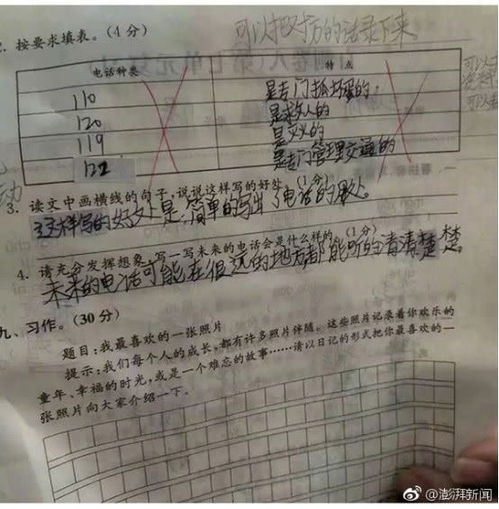 可以把对方的话录下来
2. 按要求填表。(4 分)
电话种类 特点
110 是专门抓坏蛋的.
120 是救人的
119 是灭火的
122 是专门管理交通的
3. 读文中画横线的句子,说说这样写的好处。(1分)
这样写的好处是,简单的写出了电话的用处。
4. 请充分发挥想象,写一写未来的电话会是什么样的。(1分)
未来的电话可能在很远的地方都能听的清清楚楚。
九、习作。(30 分)
题目:我最喜欢的一张照片
提示:我们每个人的成长,都有许多照片伴随。这些照片记录着你欢乐的
童年、幸福的时光,或是一个难忘的故事……请以日记的形式把你最喜欢的一
张照片向大家介绍一下。
@澎湃新闻